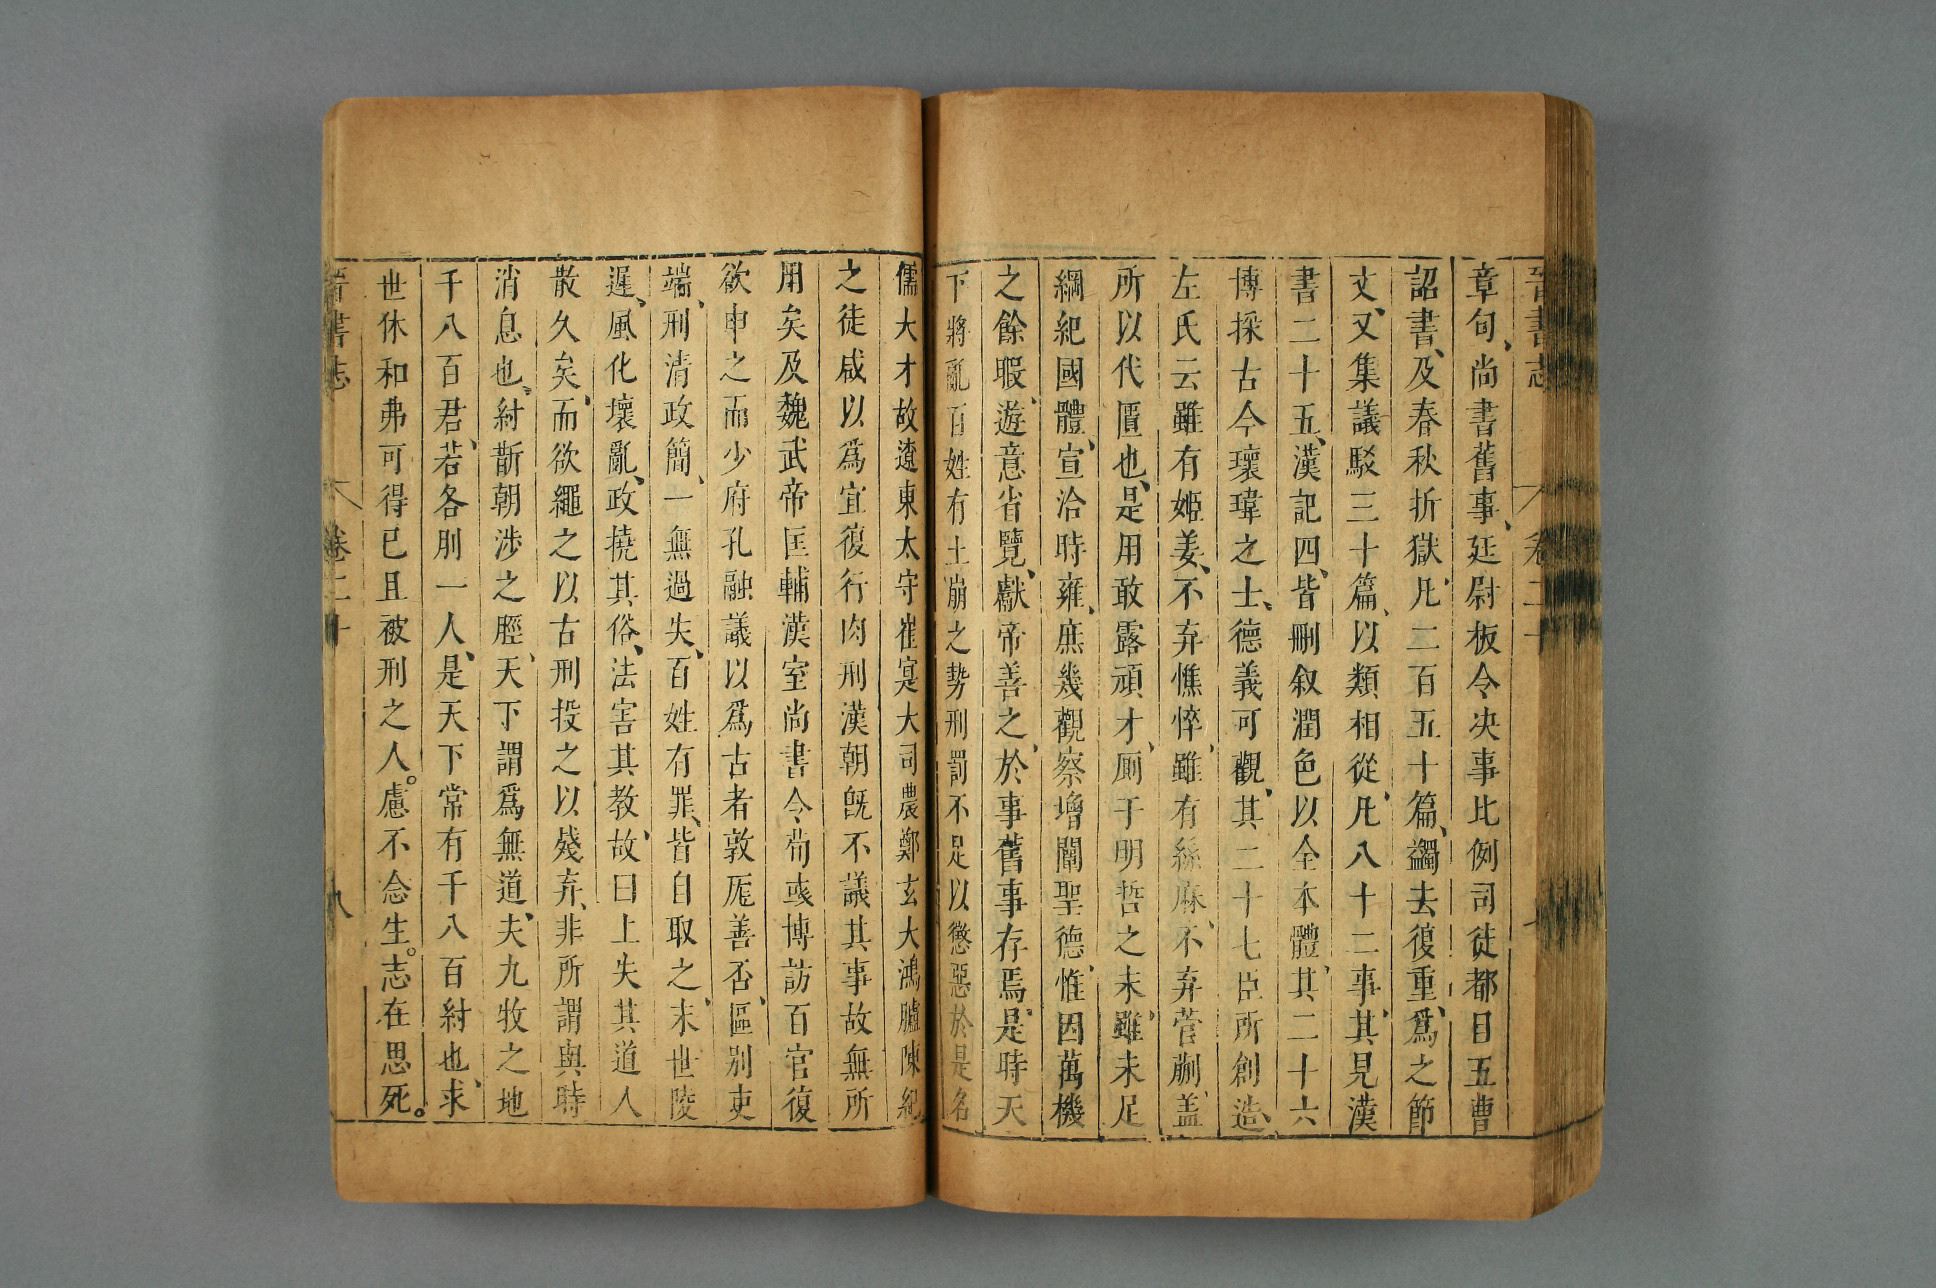 晉書志 卷二十
章句、尚書舊事、廷尉板令決事比例司徒都目五曹
詔書、及春秋折獄、凡二百五十篇、蠲去復重、爲之節
文、又集議駁三十篇、以類相從、凡八十二事、其見漢
書二十五、漢記四、皆刪叙潤色以全本體、其二十六
博採古今瓌瑋之士、德義可觀、其二十七臣所創造、
左氏云雖有姬姜、不弃憔悴、雖有絲麻、不弃菅蒯、蓋
所以代匱也、是用敢露頑才、厠于明哲之末、雖未足
綱紀國體、宣洽時雍、庶幾觀察增闡聖德、惟因萬機
之餘暇、遊意省覽、獻帝善之、於事舊事存焉、是時天
下將亂百姓有土崩之勢刑罰不足以懲惡於是名
儒大才故遼東太守崔寔大司農鄭玄大鴻臚陳紀
之徒咸以爲宜復行肉刑漢朝旣不議其事故無所
用矣及魏武帝匡輔漢室尚書令荀彧博訪百官復
欲申之而少府孔融議以爲古者敦厖善否、區別吏
端、刑清政簡、一無過失、百姓有罪、皆自取之、末世陵
遲、風化壞亂、政撓其俗、法害其教、故曰上失其道人
散久矣、而欲繩之以古刑投之以殘弃、非所謂與時
消息也、紂斮朝涉之脛、天下謂爲無道、夫九牧之地
千八百君、若各刖一人、是天下常有千八百紂也、求
世休和弗可得已且被刑之人。慮不念生。志在思死。
晉書志 卷二十 八